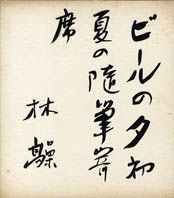 ビールの夕初
夏の隨筆寄
席
林髞